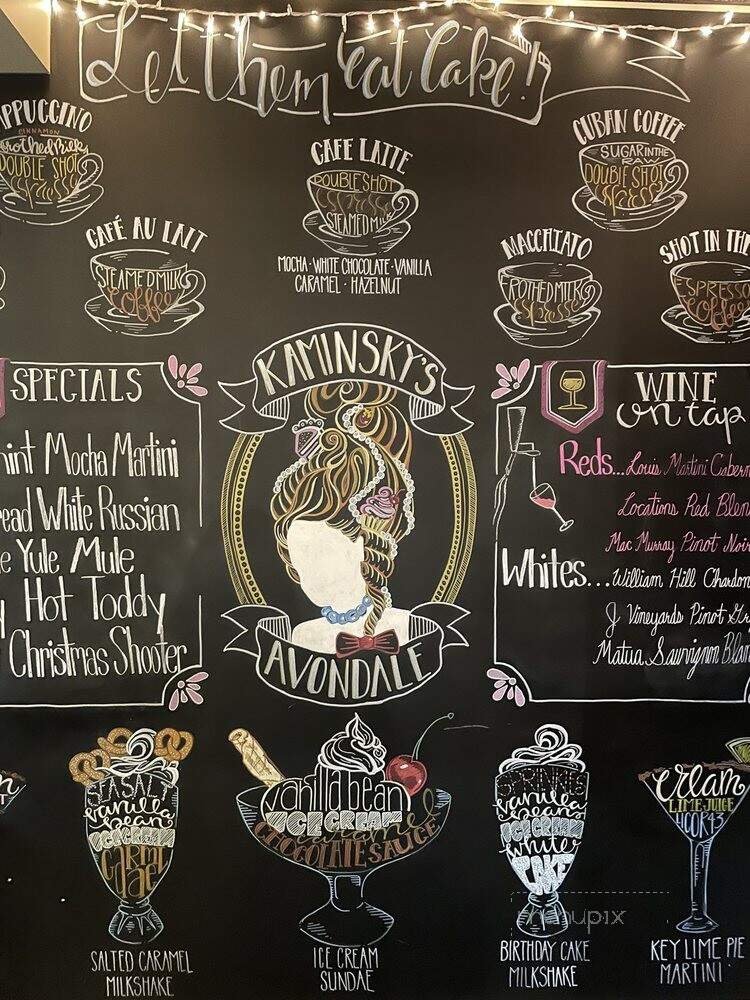 Let them eat Cake!
APPUCCINO
CINNAMON
frothed milk
DOUBLE SHOT
espresso
CAFE LATTE
DOUBLE SHOT
espresso
STEAMED MILK
MOCHA · WHITE CHOCOLATE · VANILLA
CARAMEL · HAZELNUT
CUBAN COFFEE
SUGAR IN THE
RAW
DOUBLE SHOT
espresso
CAFÉ AU LAIT
STEAMED MILK
coffee
MACCHIATO
FROTHED MILK
espresso
SHOT IN THE
ESPRESSO
coffee
SPECIALS
mint Mocha Martini
read White Russian
e Yule Mule
y Hot Toddy
Christmas Shooter
KAMINSKY'S
AVONDALE
WINE
on tap
Reds... Louis Martini Cabern
Locations Red Blen
Mac Murray Pinot Noir
Whites... William Hill Chardon
J Vineyards Pinot Gr
Matua Sauvignon Blan
SEA SALT
vanilla
bean
ICE CREAM
CARAMEL
SALTED CARAMEL
MILKSHAKE
vanilla bean
ICE CREAM
caramel
CHOCOLATE SAUCE
ICE CREAM
SUNDAE
SPRINKLES
vanilla
bean
ICE CREAM
white
CAKE
BIRTHDAY CAKE
MILKSHAKE
cream
LIME JUICE
LICOR 43
KEY LIME PIE
MARTINI
menupix